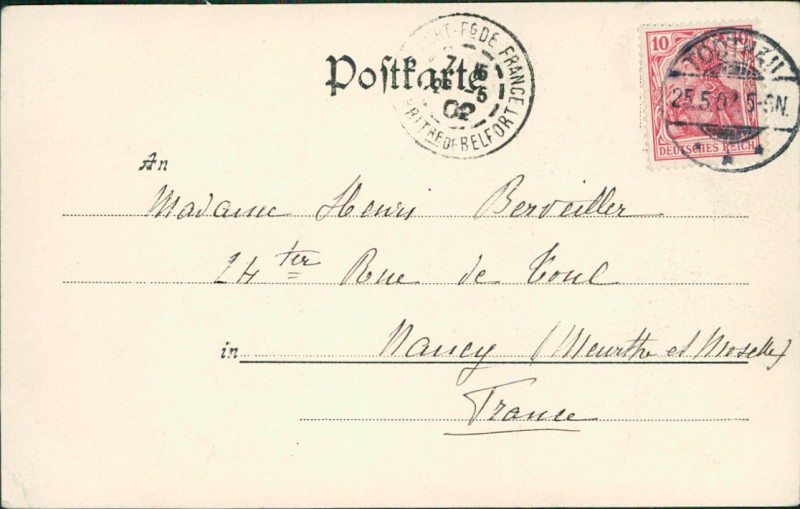 Postkarte
FG DE FRANCE
BELFORT
02
10
DEUTSCHES REICH
TODTNAU
25.5.02 5-6N.
An
Madame Henri Berveiller
24 ter Rue de Toul
in Nancy (Meurthe et Moselle)
France